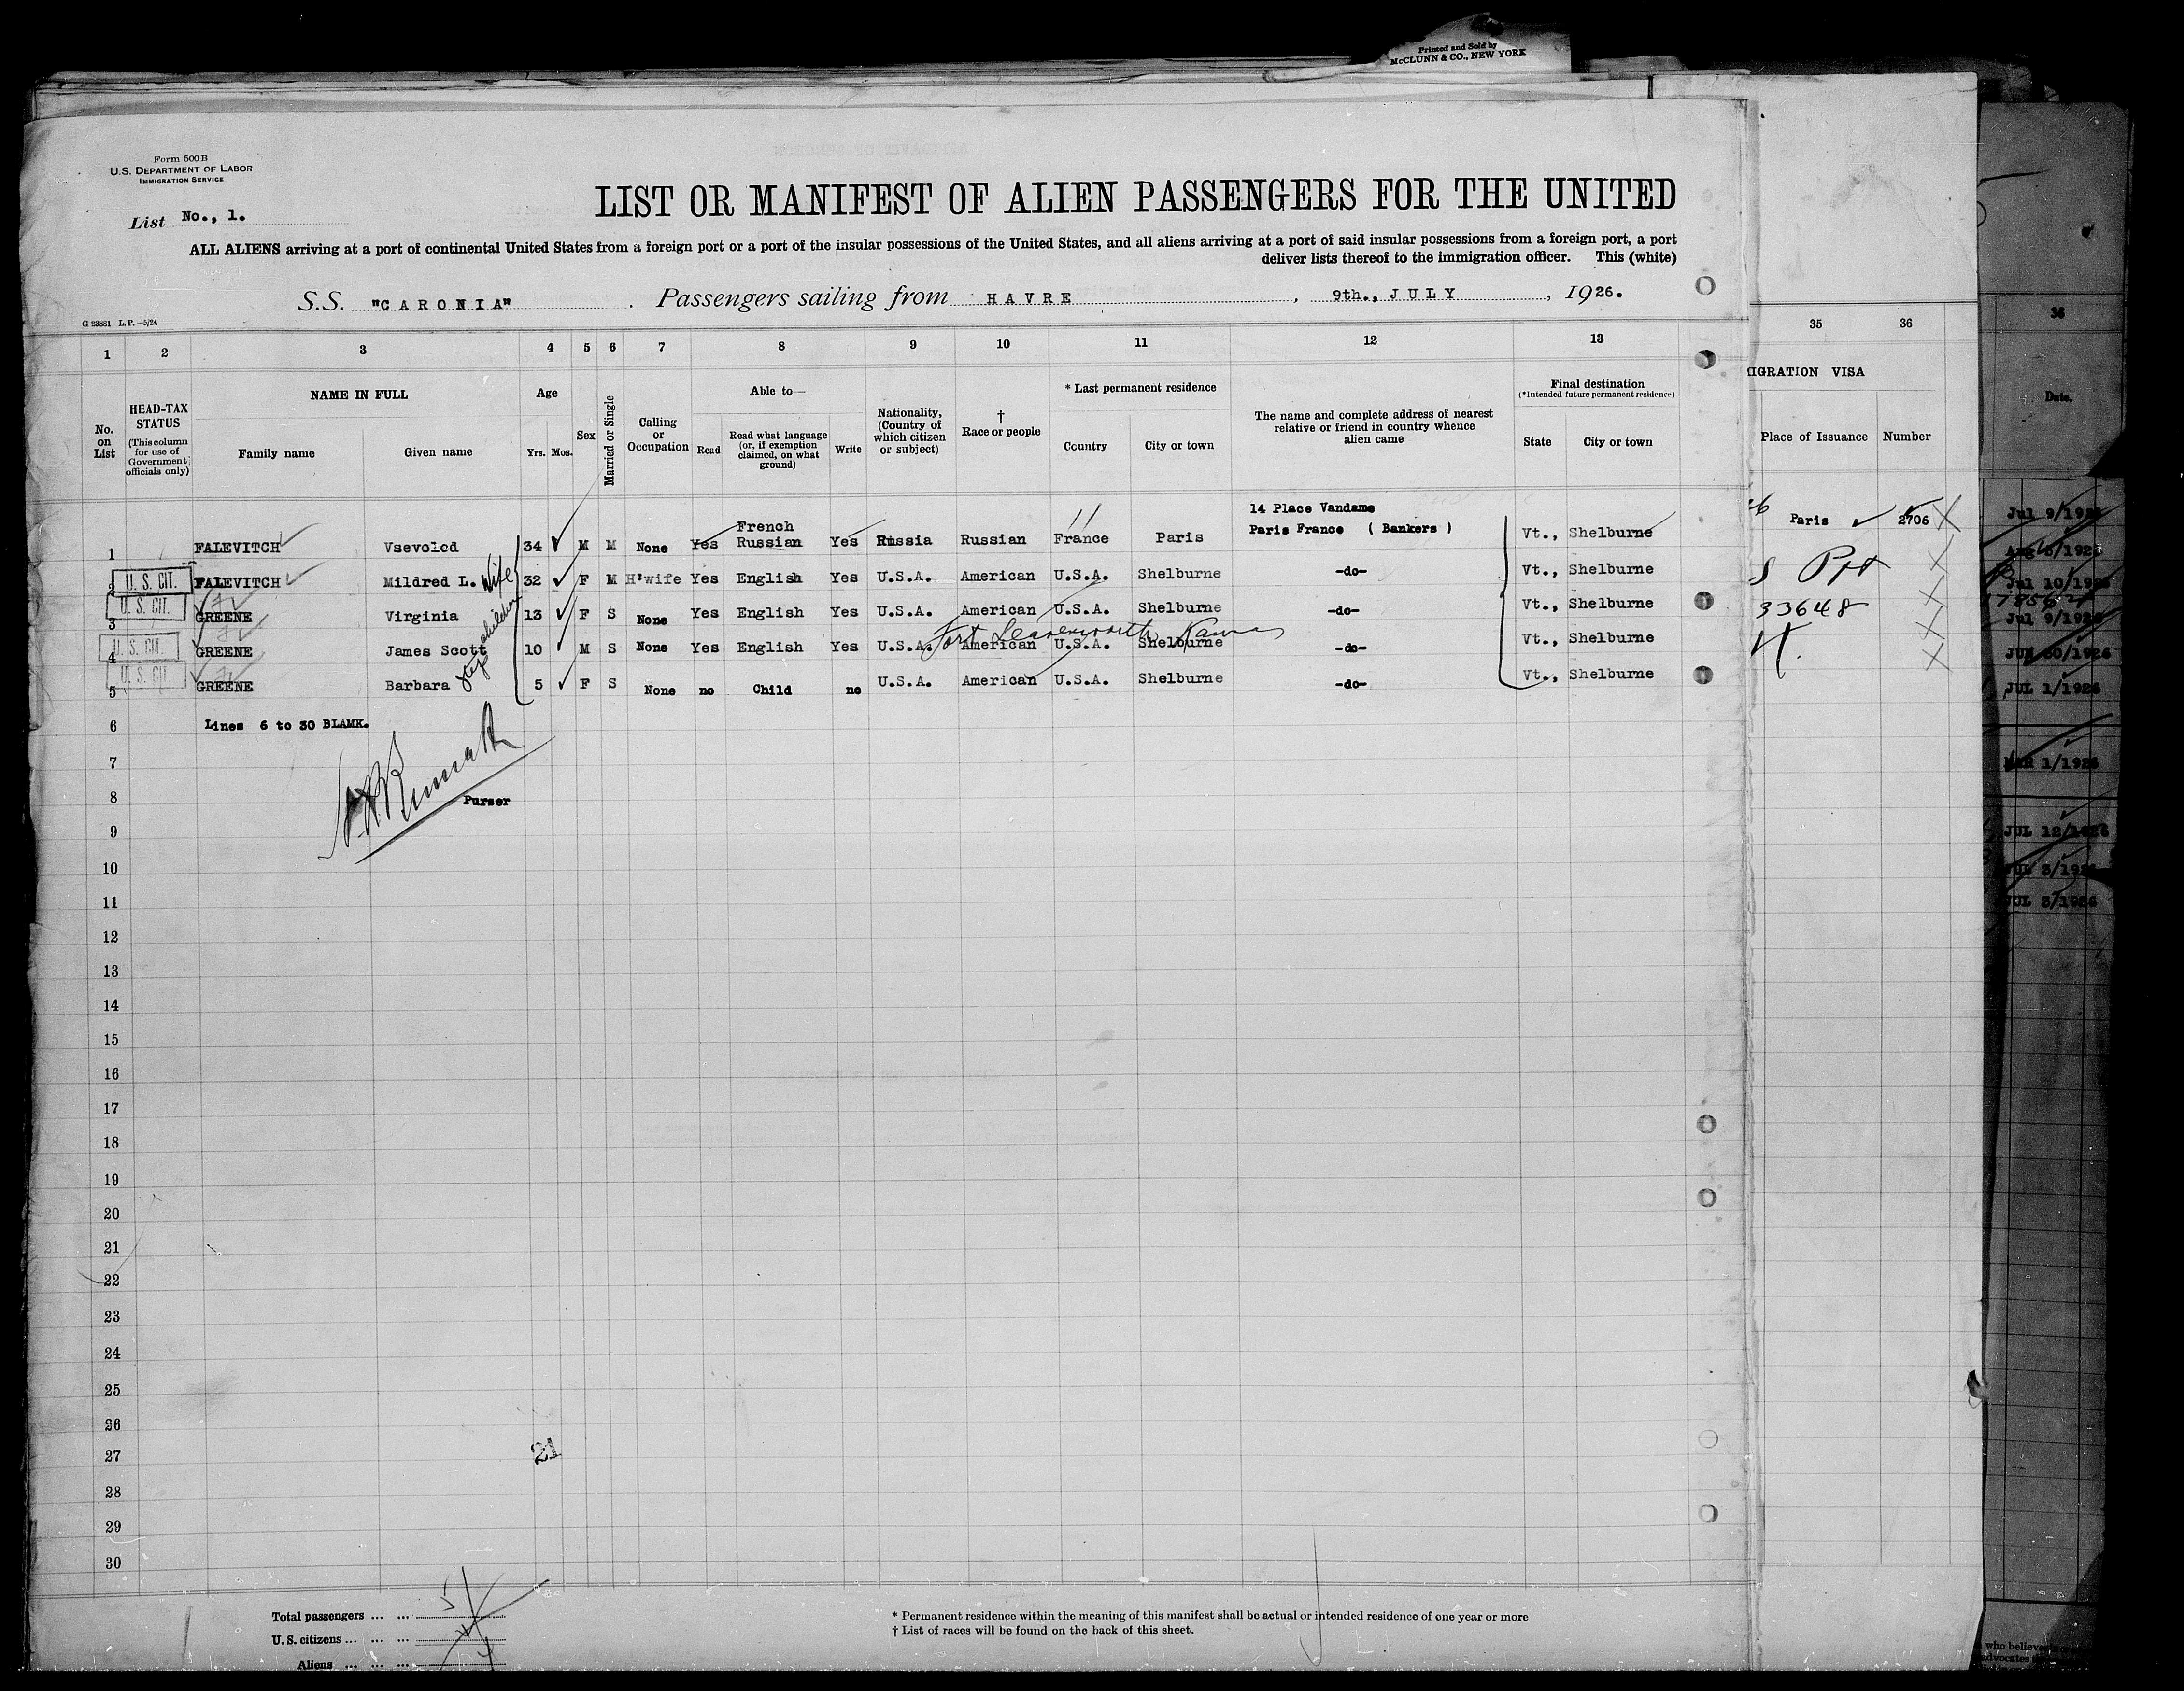 Printed and Sold by
McCLUNN & CO., NEW YORK
Form 500B
U.S. DEPARTMENT OF LABOR
IMMIGRATION SERVICE
List No., 1.
LIST OR MANIFEST OF ALIEN PASSENGERS FOR THE UNITED
ALL ALIENS arriving at a port of continental United States from a foreign port or a port of the insular possessions of the United States, and all aliens arriving at a port of said insular possessions from a foreign port, a port
deliver lists thereof to the immigration officer. This (white)
S.S. "CARONIA" . Passengers sailing from HAVRE , 9th., JULY , 1926.
G 23881 L.P.—5/24
1 2 3 4 5 6 7 8 9 10 11 12 13 35 36 36
No. on List
HEAD-TAX STATUS
(This column for use of Government officials only)
NAME IN FULL
Family name Given name
Age
Yrs. Mos.
Sex
Married or Single
Calling or Occupation
Able to—
Read
Read what language (or, if exemption claimed, on what ground)
Write
Nationality, (Country of which citizen or subject)
† Race or people
* Last permanent residence
Country City or town
The name and complete address of nearest relative or friend in country whence alien came
Final destination
(*Intended future permanent residence)
State City or town
IGRATION VISA
Place of Issuance Number
Date.
14 Place Vandame
French
Paris France ( Bankers )
1 FALEVITCH Vsevolod 34 M M None Yes Russian Yes Russia Russian France Paris Vt., Shelburne Paris 2706
2 U. S. CIT. FALEVITCH Mildred L. Wife 32 F M H'wife Yes English Yes U.S.A. American U.S.A. Shelburne -do- Vt., Shelburne
3 U. S. CIT. GREENE Virginia 13 F S None Yes English Yes U.S.A. American U.S.A. Shelburne -do- Vt., Shelburne 33648
Fort Leavenworth Kansas
4 U. S. CIT. GREENE James Scott 10 M S None Yes English Yes U.S.A. American U.S.A. Shelburne -do- Vt., Shelburne
5 U. S. CIT. GREENE Barbara 5 F S None no Child no U.S.A. American U.S.A. Shelburne -do- Vt., Shelburne
Stepchildren
6 Lines 6 to 30 BLAMK.
7
8 Purser
9
10
11
12
13
14
15
16
17
18
19
20
21
22
23
24
25
26
27 21
28
29
30
Jul 9/1926
Jul 10/1926
Jul 9/1926
JUN 30/1926
JUL 1/1926
MAR 1/1926
JUL 12/1926
JUL 3/1926
JUL 3/1926
Total passengers ... ... 5
U.S. citizens ... ... ...
Aliens ... ... ...
* Permanent residence within the meaning of this manifest shall be actual or intended residence of one year or more
† List of races will be found on the back of this sheet.
who believe
advocates